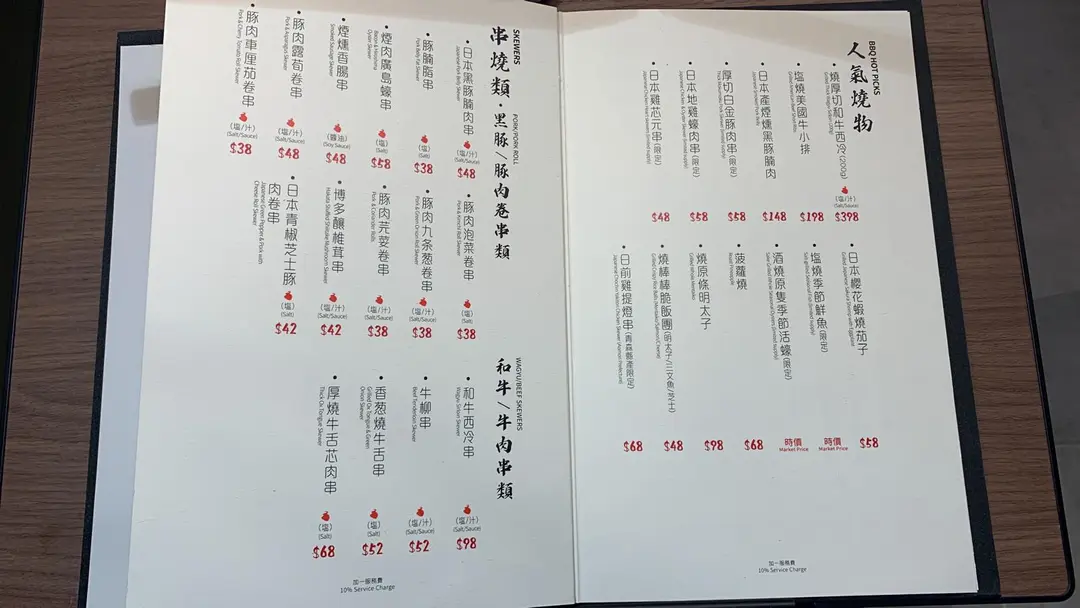 BBQ HOT PICKS
人氣燒物
燒厚切和牛西冷(200g)
(塩/汁)
(Salt/Sauce)
$398
塩燒美國牛小排
$198
日本產煙燻黑豚腩肉
$148
厚切白金豚肉串(限定)
$58
日本地雞蠔肉串(限定)
$58
日本雞芯元串(限定)
$48
日本櫻花蝦燒茄子
$58
塩燒季節鮮魚(限定)
時價
Market Price
酒燒原隻季節活蠔(限定)
時價
Market Price
菠蘿燒
Roast Pineapple
$68
燒原條明太子
Grilled Whole Mentaiko
$98
燒棒棒脆飯團(明太子/三文魚/芝士)
$48
日前雞提燈串(青森縣產限定)
$68
加一服務費
10% Service Charge
SKEWERS
串燒類
PORK/PORK ROLL
・黑豚/豚肉卷串類
日本黑豚腩肉串
Japanese Pork Belly Skewer
(塩/汁)
(Salt/Sauce)
$48
豚腩脂串
Pork Belly Fat Skewer
(塩)
(Salt)
$38
煙肉廣島蠔串
Bacon & Hiroshima
Oyster Skewer
(塩)
(Salt)
$58
煙燻香腸串
Smoked Sausage Skewer
(醬油)
(Soy Sauce)
$48
豚肉露荀卷串
Pork & Asparagus Skewer
(塩/汁)
(Salt/Sauce)
$48
豚肉車厘茄卷串
Pork & Cherry Tomato Roll Skewer
(塩/汁)
(Salt/Sauce)
$38
豚肉泡菜卷串
Pork & Kimchi Roll Skewer
(塩)
(Salt)
$38
豚肉九条葱卷串
Pork & Green Onion Roll Skewer
(塩/汁)
(Salt/Sauce)
$38
豚肉芫荽卷串
Pork & Coriander Rolls
(塩/汁)
(Salt/Sauce)
$38
博多釀椎茸串
Hakata Stuffed Shiitake Mushroom Skewer
(塩/汁)
(Salt/Sauce)
$42
日本青椒芝士豚
肉卷串
Japanese Green Pepper & Pork with
Cheese Roll Skewer
(塩)
(Salt)
$42
WAGYU/BEEF SKEWERS
和牛/牛肉串類
和牛西冷串
Wagyu Sirloin Skewer
(塩/汁)
(Salt/Sauce)
$98
牛柳串
Beef Tenderloin Skewer
(塩/汁)
(Salt/Sauce)
$52
香葱燒牛舌串
Grilled Ox Tongue & Green
Onion Skewer
(塩)
(Salt)
$52
厚燒牛舌芯肉串
Thick Ox Tongue Skewer
(塩)
(Salt)
$68
加一服務費
10% Service Charge